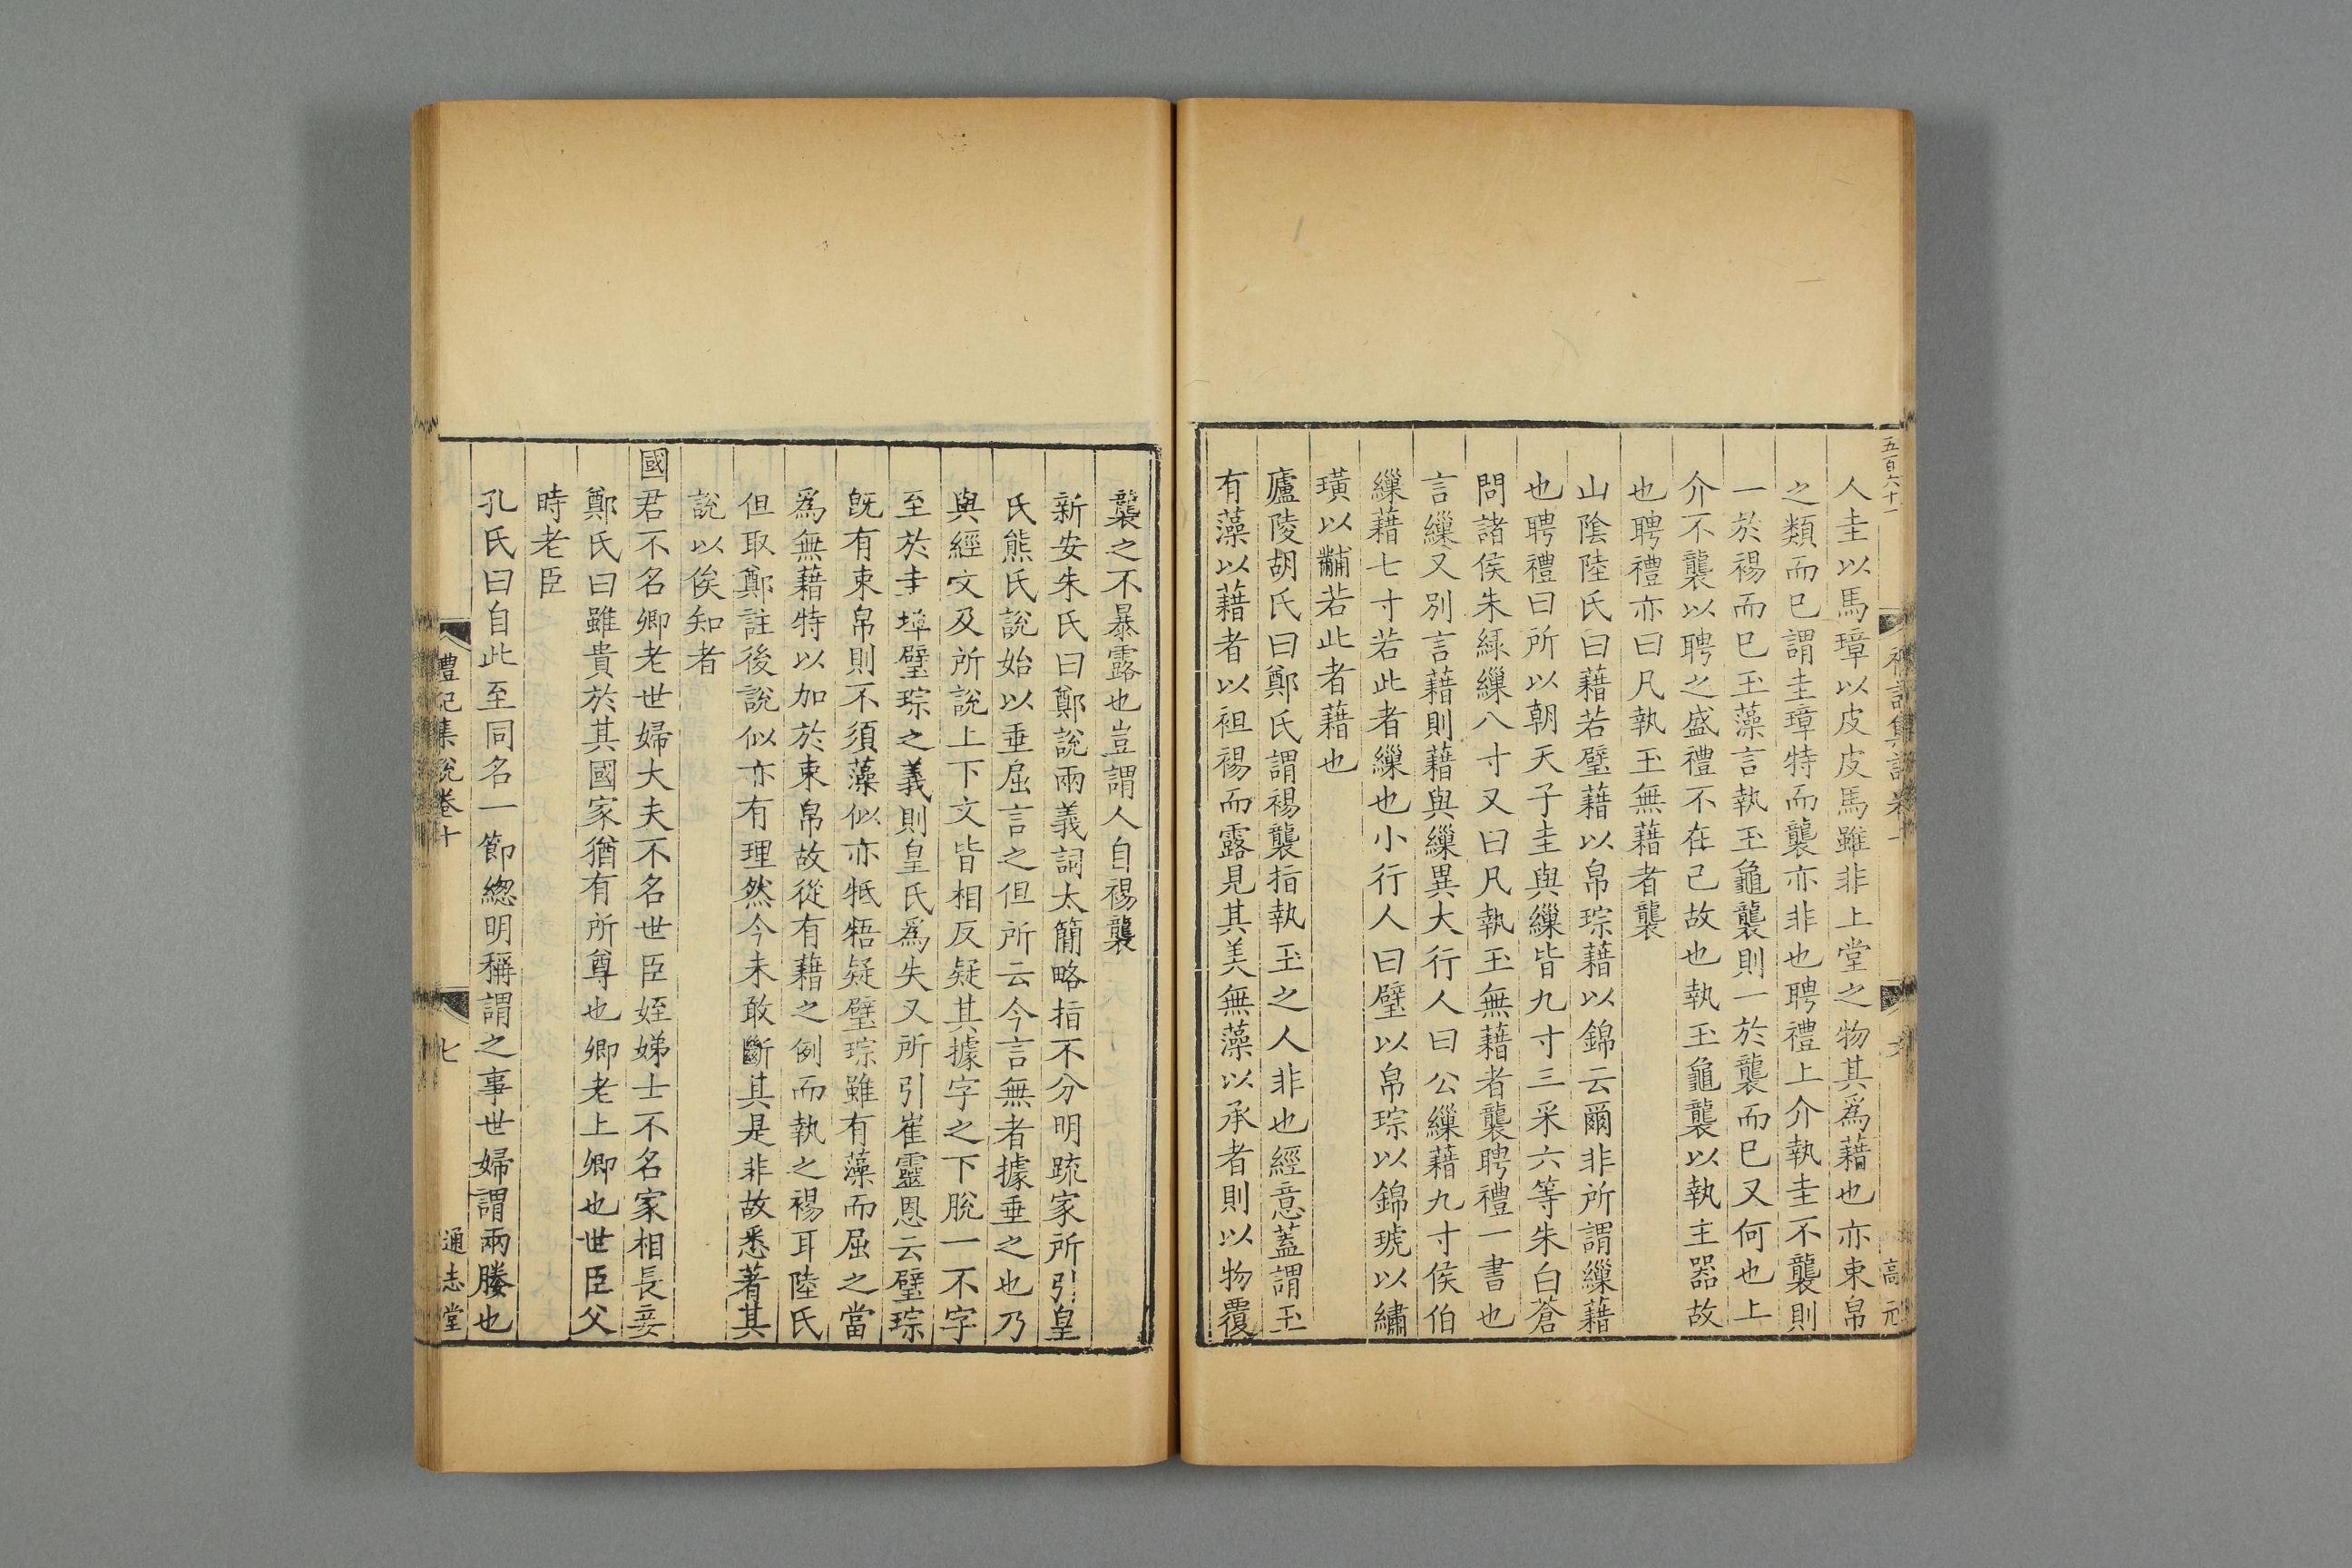 五百六十一
禮記集說卷十
六
高元
人圭以馬璋以皮皮馬雖非上堂之物其爲藉也亦束帛
之類而已謂圭璋特而襲亦非也聘禮上介執圭不襲則
一於裼而已玉藻言執玉龜襲則一於襲而已又何也上
介不襲以聘之盛禮不在己故也執玉龜襲以執主器故
也聘禮亦曰凡執玉無藉者襲
山陰陸氏曰藉若璧藉以帛琮藉以錦云爾非所謂繅藉
也聘禮曰所以朝天子圭與繅皆九寸三采六等朱白蒼
問諸侯朱綠繅八寸又曰凡執玉無藉者襲聘禮一書也
言繅又別言藉則藉與繅異大行人曰公繅藉九寸侯伯
繅藉七寸若此者繅也小行人曰璧以帛琮以錦琥以繡
璜以黼若此者藉也
廬陵胡氏曰鄭氏謂裼襲指執玉之人非也經意蓋謂玉
有藻以藉者以袒裼而露見其美無藻以承者則以物覆
襲之不暴露也豈謂人自裼襲
新安朱氏曰鄭說兩義詞太簡略指不分明疏家所引皇
氏熊氏說始以垂屈言之但所云今言無者據垂之也乃
與經文及所說上下文皆相反疑其據字之下脫一不字
至於圭璋璧琮之義則皇氏爲失又所引崔靈恩云璧琮
旣有束帛則不須藻似亦牴牾疑璧琮雖有藻而屈之當
爲無藉特以加於束帛故從有藉之例而執之裼耳陸氏
但取鄭註後說似亦有理然今未敢斷其是非故悉著其
說以俟知者
國君不名卿老世婦大夫不名世臣姪娣士不名家相長妾
鄭氏曰雖貴於其國家猶有所尊也卿老上卿也世臣父
時老臣
孔氏曰自此至同名一節緫明稱謂之事世婦謂兩媵也
禮記集說卷十
七
通志堂